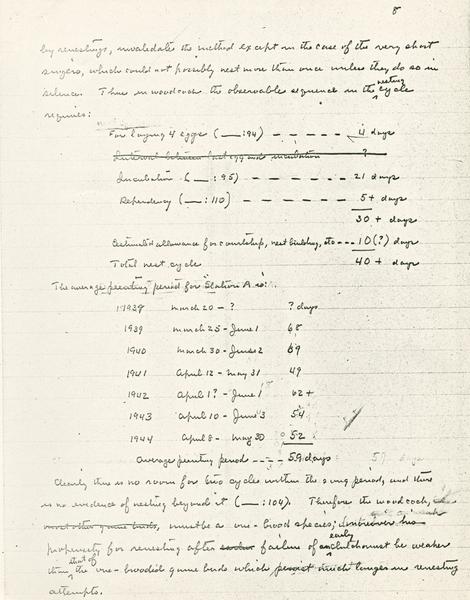 8
by renestings, invalidate the method except in the case of the very short
singers, which could not possibly nest more than once unless they do so in
silence. Thus in woodcock the observable sequence in the nesting cycle
requires:
For laying 4 eggs (__:94) - - - - - 4 days
Interval between last egg and incubation ?
Incubation (__:95) - - - - - - 21 days
Dependency (__:110) - - - - - - 5+ days
30 + days
Estimated allowance for courtship, nest building, etc --- 10(?) days
Total nest cycle 40 + days
The average peenting period for "Station A" is:
1938 March 20 - ? ? days
1939 March 25 - June 1 68
1940 March 30 - June 2 69
1941 April 12 - May 31 49
1942 April 1? - June 1 62+
1943 April 10 - June 3 54
1944 April 8 - May 30 52
Average peenting period ---- 59 days
Clearly there is no room for two cycles within the song period, and there
is no evidence of nesting beyond it (__:104). Therefore the woodcock,
must be a one-brood species;
propensity for renesting after early failure of must be weaker
than that of the one-brooded game birds which persist much longer in renesting
attempts.